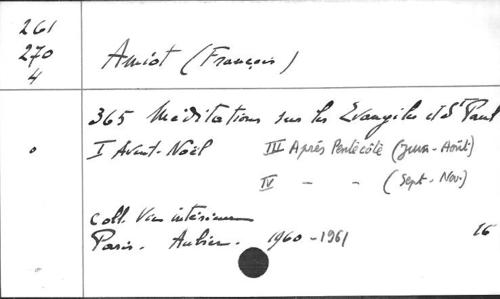 261
270
4
Amiot (François)
365 Méditations sur les Evangiles et St Paul
I Avent-Noël III Après Pentecôte (Juin-Août)
IV - - (Sept-Nov.)
Coll. Vie intérieure
Paris. Aubier. 1960-1961 16